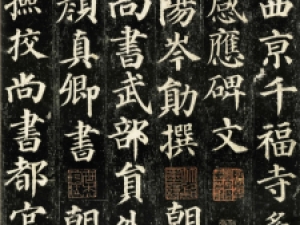 西京千福寺多
感應碑文
陽岑勛撰 朝
尚書武部員外
顏真卿書 朝
撿校尚書都官